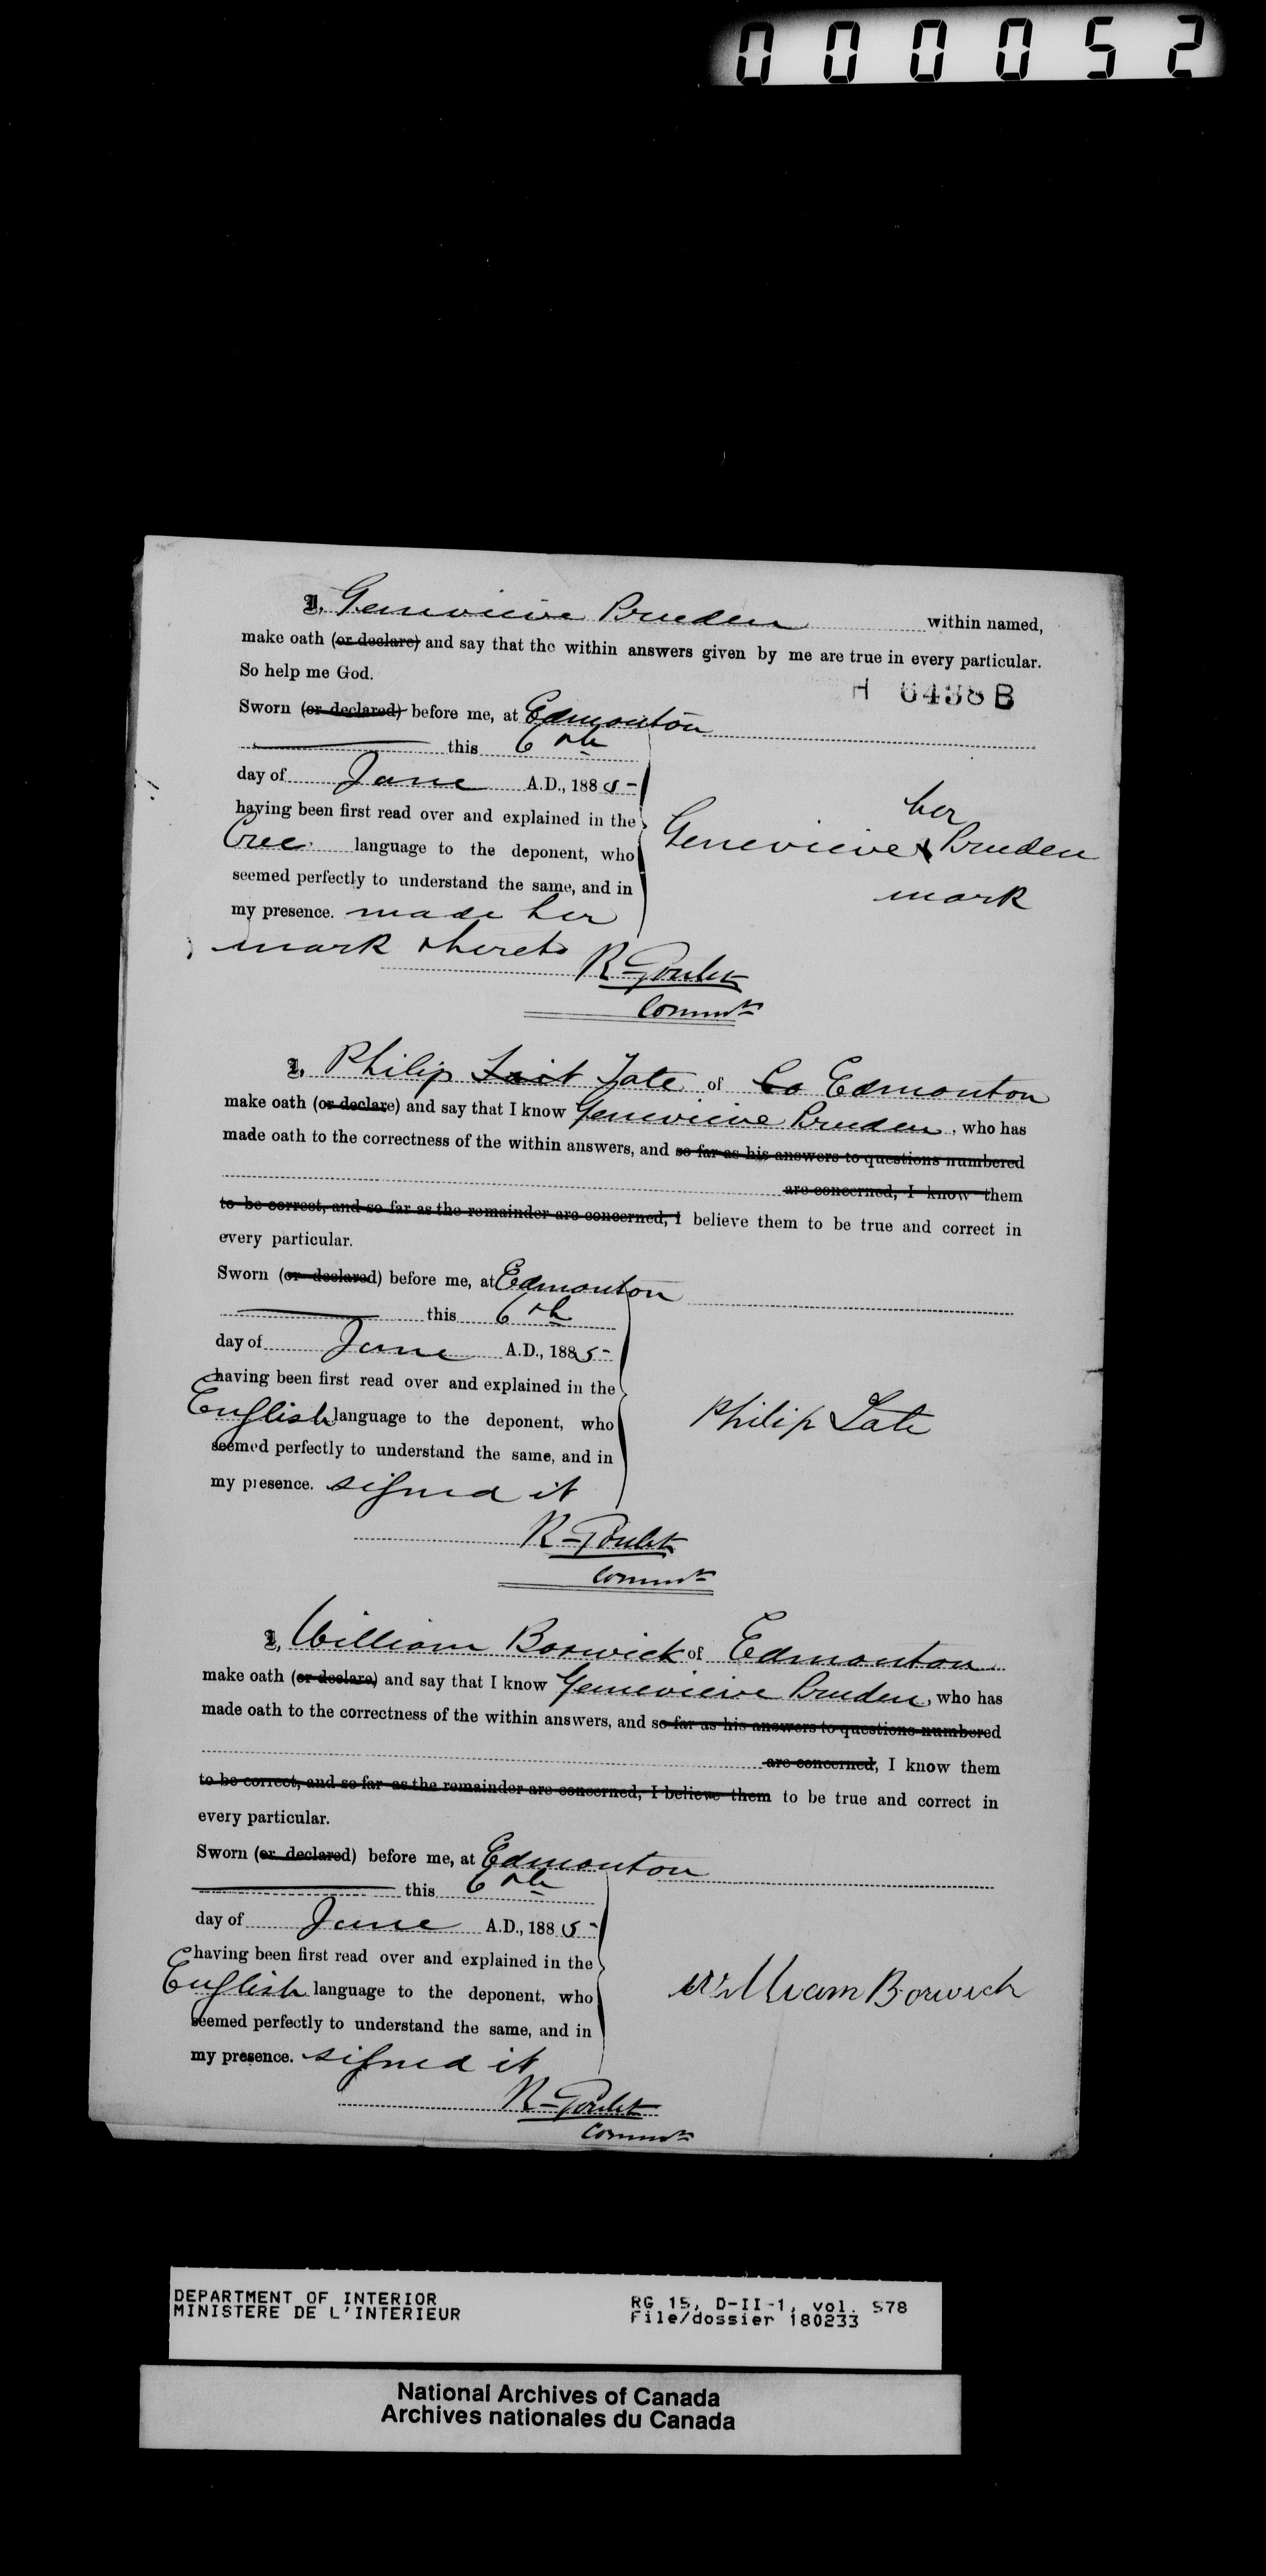 000052
I, Genevieve Bruden within named,
make oath (or declare) and say that the within answers given by me are true in every particular.
So help me God.
H 6438 B
Sworn (or declared) before me, at Edmonton
this 6th
day of June A.D., 1885
having been first read over and explained in the
Cree language to the deponent, who
seemed perfectly to understand the same, and in
my presence. made her
mark thereto
her
Genevieve X Bruden
mark
R Goulet
Commr
I, Philip Tait Tate of Co Edmonton
make oath (or declare) and say that I know Genevieve Bruden, who has
made oath to the correctness of the within answers, and so far as his answers to questions numbered
are concerned, I know them
to be correct, and so far as the remainder are concerned, I believe them to be true and correct in
every particular.
Sworn (or declared) before me, at Edmonton
this 6th
day of June A.D., 1885
having been first read over and explained in the
English language to the deponent, who
seemed perfectly to understand the same, and in
my presence. signed it
Philip Tate
R Goulet
Commr
I, William Borwick of Edmonton
make oath (or declare) and say that I know Genevieve Bruden, who has
made oath to the correctness of the within answers, and so far as his answers to questions numbered
are concerned, I know them
to be correct, and so far as the remainder are concerned, I believe them to be true and correct in
every particular.
Sworn (or declared) before me, at Edmonton
this 6th
day of June A.D., 1885
having been first read over and explained in the
English language to the deponent, who
seemed perfectly to understand the same, and in
my presence. signed it
William Borwick
R Goulet
Commr
DEPARTMENT OF INTERIOR
MINISTERE DE L'INTERIEUR
RG 15, D-II-1, vol. 578
File/dossier 180233
National Archives of Canada
Archives nationales du Canada